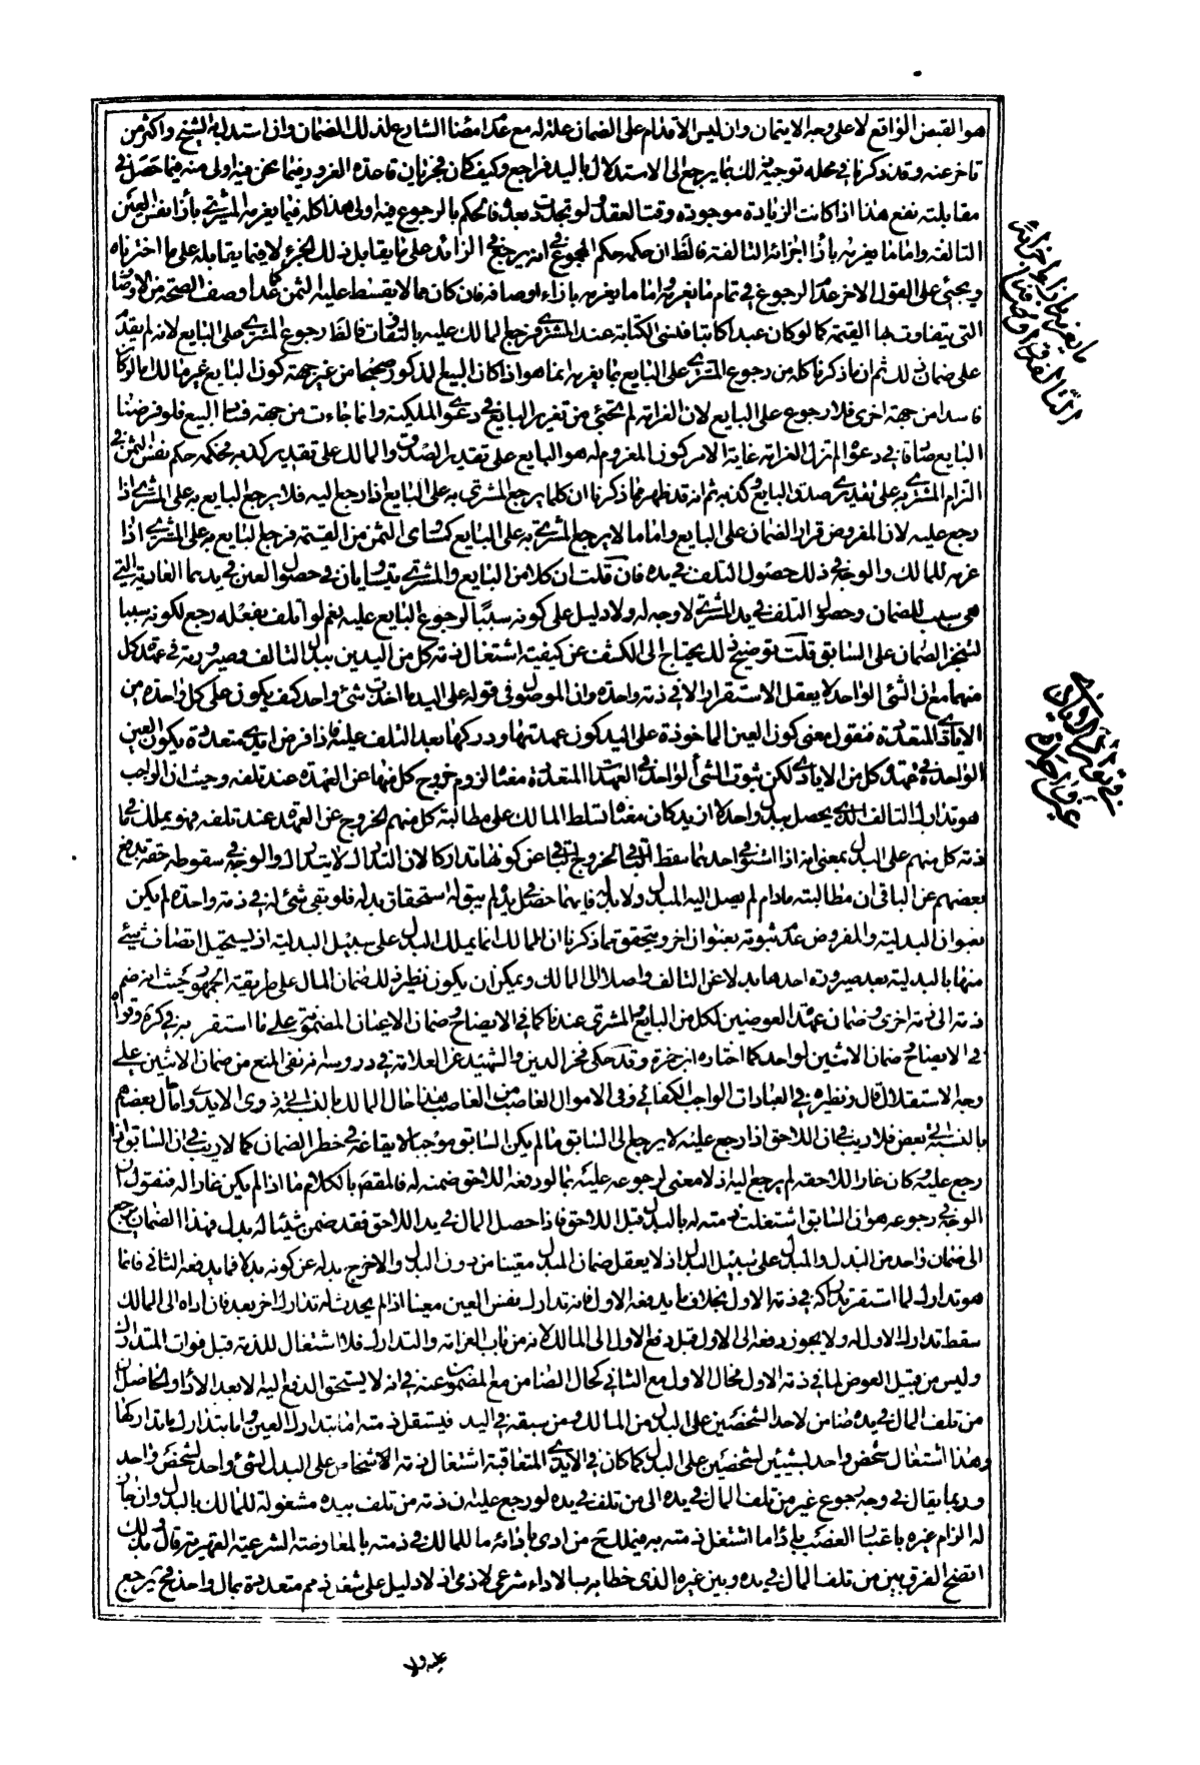 هو القبض الواقع لا على وجه الايتمان وان ليس الاقدام على الضمان علة له مع عدم امضاء الشارع لذلك الضمان وان استدل به الشيخ واكثر من
تاخر عنه وقد ذكرنا في محله توجيه ذلك بما يرجع الى الاستدلال باليد فراجع وكيف كان فجريان قاعدة الغرور فيما نحن فيه اولى منه فيما حصل في
مقابلته نفع هذا اذا كانت الزيادة موجودة وقت العقد ولو تجددت بعده فالحكم بالرجوع فيه اولى هذا كله فيما يغرمه المشتري بازاء نفس العين
التالفة واما ما يغرمه بازاء اجزائه التالفة فالظ ان حكمه حكم المجموع في انه يرجع في الزائد على ما يقابل ذلك الجزء لا فيما يقابله على ما اخترناه
ويجئ على القول الاخر عدم الرجوع في تمام ما يغرمه واما ما يغرمه بازاء اوصافه فان كان مما لا يقسط عليه الثمن كما عدا وصف الصحة من الاوصاف
التي يتفاوت بها القيمة كما لو كان عبدا كاتبا فنسى الكتابة عند المشتري فرجع المالك عليه بالتفاوت فالظ رجوع المشتري على البايع لانه لم يقدم
على ضمان ذلك ثم ان ما ذكرنا كله من رجوع المشتري على البايع بما يغرمه انما هو اذا كان البيع المذكور صحيحا من غير جهة كون البايع غير مالك اما لو كان
فاسدا من جهة اخرى فلا رجوع على البايع لان الغرامة لم تجئ من تغرير البايع في دعوى الملكية وانما جاءت من جهة فساد البيع فلو فرضنا
البايع صادقا في دعواه لم تزل الغرامة غاية الامر كون المغروم له هو البايع على تقدير الصدق والمالك على تقدير كذبه فحكمه حكم نفس الثمن في
التزام المشتري به على تقديري صدق البايع وكذبه ثم انه قد ظهر مما ذكرنا ان كلما يرجع المشتري به على البايع اذا رجع اليه فلا يرجع البايع به على المشتري اذا
رجع عليه لان المفروض قرار الضمان على البايع واما ما لا يرجع المشتري به على البايع كمساوى الثمن من القيمة فيرجع البايع به على المشتري اذا
غرمه للمالك والوجه في ذلك حصول التلف في يده فان قلت ان كلا من البايع والمشتري يتساويان في حصول العين في يدهما العادية التي
هي سبب للضمان وحصول التلف في يد المشتري لا وجه له ولا دليل على كونه سببا لرجوع البايع عليه نعم لو اتلف بفعله رجع لكونه سببا
لتنجز الضمان على السابق قلت توضيح ذلك يحتاج الى الكشف عن كيفية اشتغال ذمة كل من اليدين ببدل التالف وصيرورته في عهدة كل
منهما مع ان الشئ الواحد لا يعقل الاستقرار الا في ذمة واحدة وان الموصول في قوله على اليد ما اخذت شئ واحد كيف يكون على كل واحدة من
الايادي المتعددة فنقول معنى كون العين الماخوذة على اليد كون عهدتها ودركها بعد التلف عليه فاذا فرض ايد متعددة يكون العين
الواحدة في عهدة كل من الايادي لكن ثبوت الشئ الواحد في العهدات المتعددة معناه لزوم خروج كل منها عن العهدة عند تلفه وحيث ان الواجب
هو تدارك التالف الذي يحصل ببدل واحد لا ازيد كان معناه تسلط المالك على مطالبة كل منهم الخروج عن العهدة عند تلفه فهو يملك ما في
ذمة كل منهم على البدل بمعنى انه اذا استوفى احدهما سقط الباقي لخروج الباقي عن كونها تداركا لان التدارك لا يتدارك والوجه في سقوط حقه بدفع
بعضهم عن الباقي ان مطالبته مادام لم يصل اليه المبدل ولا بدله فايهما حصل في يده لم يبق له استحقاق بدله فلو بقى شئ له في ذمة واحدة لم يكن
بعنوان البدلية والمفروض عدم ثبوته بعنوان اخر ويتحقق مما ذكرنا ان المالك انما يملك البدل على سبيل البدلية اذ يستحيل اتصاف شئ
منها بالبدلية بعد صيرورة احدها بدلا عن التالف واصلا الى المالك ويمكن ان يكون نظير ذلك ضمان المال على طريقة الجمهور حيث انه ضم
ذمة الى ذمة اخرى وضمان عهدة العوضين لكل من البايع والمشتري عندنا كما في الايضاح وضمان الاعيان المضمونة على ما استقر به في كرة وقواه
في الايضاح وضمان الاثنين لواحد كما اختاره ابن حمزة وقد حكى فخر الدين والشهيد عن العلامة في درسه انه نفى المنع من ضمان الاثنين على
وجه الاستقلال قال ونظيره في العبادات الواجب الكفائي وفي الاموال الغاصب من الغاصب هذا حال المالك بالنسبة الى ذوى الايدي واما حال بعضهم
بالنسبة الى بعض فلا ريب في ان اللاحق اذا رجع عليه لا يرجع الى السابق ما لم يكن السابق موجبا لايقاعه في خطر الضمان كما لا ريب في ان السابق اذا
رجع عليه وكان غارا للاحقه لم يرجع اليه اذ لا معنى لرجوعه عليه بما لو دفعه اللاحق ضمنه له فالمقصود بالكلام ما اذا لم يكن غارا له فنقول ان
الوجه في رجوعه هو ان السابق اشتغلت ذمته له بالبدل قبل اللاحق فاذا حصل المال في يد اللاحق فقد ضمن شيئا له بدل فهذا الضمان يرجع
الى ضمان واحد من البدل والمبدل على سبيل البدل اذ لا يعقل ضمان المبدل معينا من دون البدل والا خرج بدله عن كونه بدلا فما يدفعه الثاني فانما
هو تدارك لما استقر تداركه في ذمة الاول بخلاف ما يدفعه الاول فانه تدارك نفس العين معينا اذ لم يحدث له تدارك اخر بعد فان اداه الى المالك
سقط تدارك الاول له ولا يجوز دفعه الى الاول قبل دفع الاول الى المالك لانه من باب الغرامة والتدارك فلا اشتغال للذمة قبل فوات المتدارك
وليس من قبيل العوض لما في ذمة الاول فحال الاول مع الثاني كحال الضامن مع المضمون عنه في انه لا يستحق الدفع اليه الا بعد الاداء والحاصل ان
من تلف المال في يده ضامن لاحد الشخصين على البدل من المالك ومن سبقه في اليد فيشتغل ذمته اما بتدارك العين واما بتدارك ما تداركها
وهذا اشتغال شخص واحد لشيئين لشخصين على البدل كما كان في الايدي المتعاقبة اشتغال ذمة الاشخاص على البدل لشئ واحد لشخص واحد
وربما يقال في وجه رجوع غير من تلف المال في يده الى من تلف في يده لو رجع عليه ان ذمة من تلف بيده مشغولة للمالك بالبدل وان جاز
له الزام غيره باعتبار الغصب باداء ما اشتغل ذمته به فيملك ح من ادى بادائه ما للمالك في ذمته بالمعاوضة الشرعية القهرية قال وبذلك
اتضح الفرق بين من تلف المال في يده وبين غيره الذى خطابه بالاداء شرعى لا ذمى اذ لا دليل على شغل ذمم متعددة بمال واحد فح يرجع
ما يغرمه بازاء اجزائه
التالفة واوصافه
عليه ولا